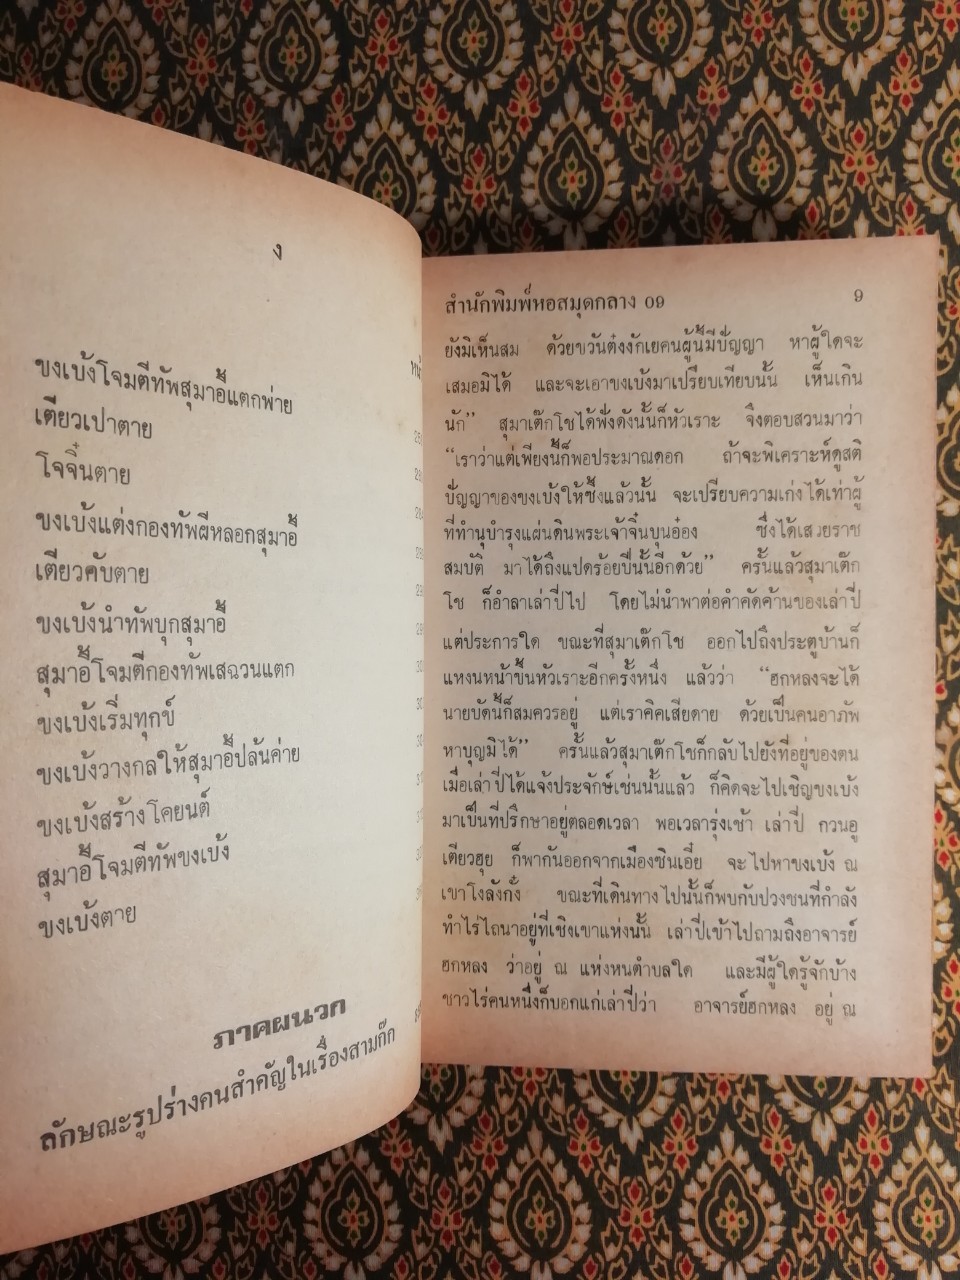 ง
ขงเบ้งโจมตีทัพสุมาอี้แตกพ่าย
เตียวเปาตาย
โจจิ๋นตาย
ขงเบ้งแต่งกองทัพผีหลอกสุมาอี้
เตียวคับตาย
ขงเบ้งนำทัพบุกสุมาอี้
สุมาอี้โจมตีกองทัพเสฉวนแตก
ขงเบ้งเริ่มทุกข์
ขงเบ้งวางกลให้สุมาอี้ปล้นค่าย
ขงเบ้งสร้างโคยนต์
สุมาอี้โจมตีทัพขงเบ้ง
ขงเบ้งตาย
ภาคผนวก
ลักษณะรูปร่างคนสำคัญในเรื่องสามก๊ก
สำนักพิมพ์หอสมุดกลาง 09 9
ยังมิเห็นสม ด้วยขวันต๋งงักเยคนผู้นี้มีปัญญา หาผู้ใดจะ
เสมอมิได้ และจะเอาขงเบ้งมาเปรียบเทียบนั้น เห็นเกิน
นัก” สุมาเต๊กโชได้ฟังดังนั้นก็หัวเราะ จึงตอบสวนมาว่า
“เราว่าแต่เพียงนี้ก็พอประมาณดอก ถ้าจะพิเคราะห์ดูสติ
ปัญญาของขงเบ้งให้ซึ้งแล้วนั้น จะเปรียบความเก่งได้เท่าผู้
ที่ทำนุบำรุงแผ่นดินพระเจ้าจิ๋นบุนอ๋อง ซึ่งได้เสวยราช
สมบัติ มาได้ถึงแปดร้อยปีนั้นอีกด้วย” ครั้นแล้วสุมาเต๊ก
โช ก็อำลาเล่าปี่ไป โดยไม่นำพาต่อคำคัดค้านของเล่าปี่
แต่ประการใด ขณะที่สุมาเต๊กโช ออกไปถึงประตูบ้านก็
แหงนหน้าขึ้นหัวเราะอีกครั้งหนึ่ง แล้วว่า “ฮกหลงจะได้
นายบัดนี้ก็สมควรอยู่ แต่เราคิดเสียดาย ด้วยเป็นคนอาภัพ
หาบุญมิได้” ครั้นแล้วสุมาเต๊กโชก็กลับไปยังที่อยู่ของตน
เมื่อเล่าปี่ได้แจ้งประจักษ์เช่นนั้นแล้ว ก็คิดจะไปเชิญขงเบ้ง
มาเป็นที่ปรึกษาอยู่ตลอดเวลา พอเวลารุ่งเช้า เล่าปี่ กวนอู
เตียวฮุย ก็พากันออกจากเมืองซินเอี๋ย จะไปหาขงเบ้ง ณ
เขาโงลังกั๋ง ขณะที่เดินทางไปนั้นก็พบกับปวงชนที่กำลัง
ทำไร่ไถนาอยู่ที่เชิงเขาแห่งนั้น เล่าปี่เข้าไปถามถึงอาจารย์
ฮกหลง ว่าอยู่ ณ แห่งหนตำบลใด และมีผู้ใดรู้จักบ้าง
ชาวไร่คนหนึ่งก็บอกแก่เล่าปี่ว่า อาจารย์ฮกหลง อยู่ ณ